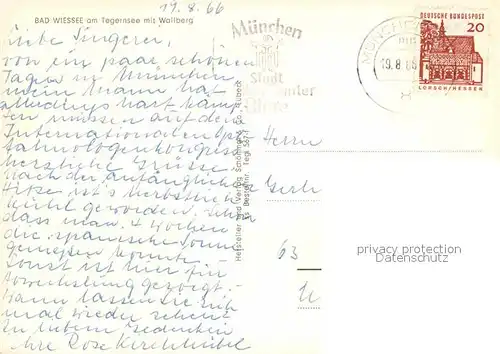 19.8.66
BAD WIESSEE am Tegernsee mit Wallberg
Liebe Singerei,
von ein paar schönen
Tagen in München
mein Mann hat
allerdings hart kämp-
fen müssen auf dem
Internationalen
kongress
herzliche Grüsse
nach der anfänglichen
Hitze ist's herbstlich
kühl geworden, schön
dass man 4 Wochen
die spanische Sonne
genießen konnte.
Sonst ist hier für
Abwechslung gesorgt.
Wann lassen Sie sich
mal wieder sehen?
In liebem Gedenken
Ihre Rose
Hersteller und Verlag Schöning & Co., Lübeck
Bestellnr. Tegi 567
München
Stadt
MÜNCHEN
19.8.66
DEUTSCHE BUNDESPOST
20
LORSCH/HESSEN
Herrn
63
privacy protection
Datenschutz